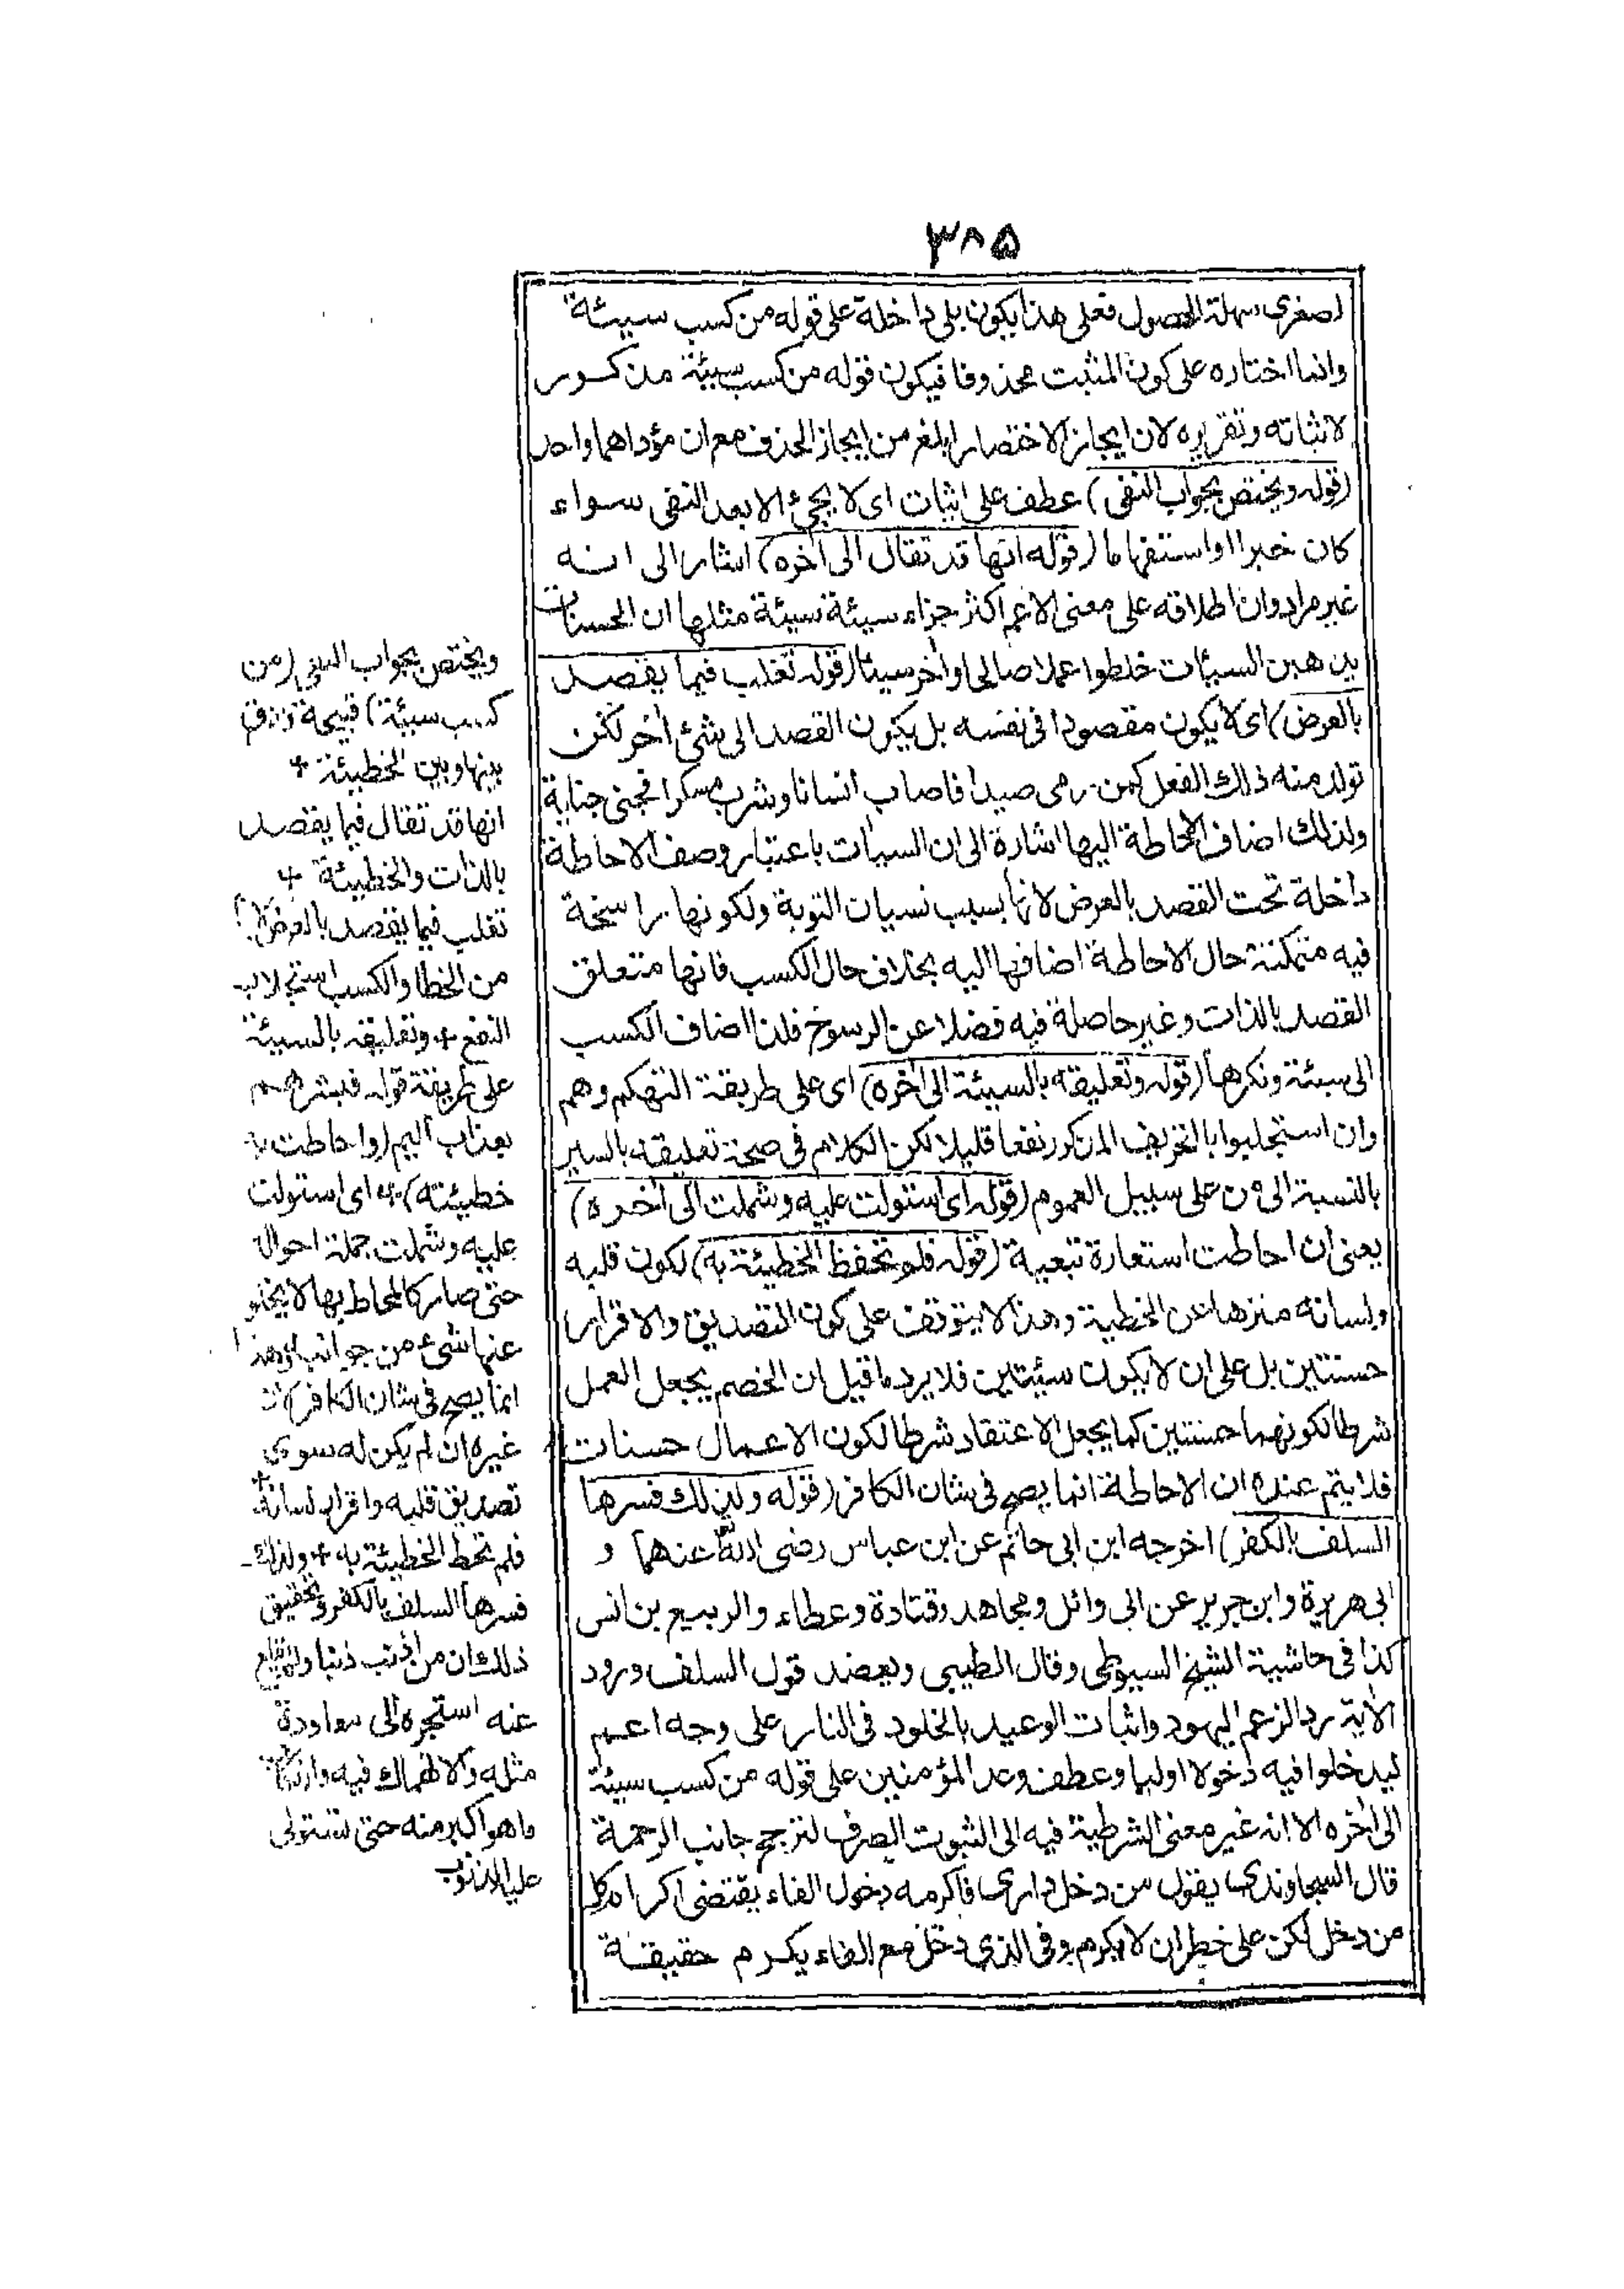 ٣٨٥
لصغرى سهلة الحصول فعلى هذا يكون بلى داخلة على قوله من كسب سيئة
وانما اختاره على كون المثبت محذوفا فيكون قوله من كسب سيئة مذكور
لاثباته وتقريره لان ايجاز الاختصار ابلغ من ايجاز الحذف مع ان مؤداهما واحد
(قوله ويختص بجواب النفى) عطف على اثبات اى لا يجئ الا بعد النفى سواء
كان خبرا او استفهاما (قوله انها قد تقال الى آخره) اشار الى انه
غير مراد وان اطلاقه على معنى الاعم اكثر جزاء سيئة سيئة مثلها ان الحسنات
يذهبن السيئات خلطوا عملا صالحا وآخر سيئا (قوله تغلب فيما يقصد
بالعرض) اى لا يكون مقصودا فى نفسه بل يكون القصد الى شئ آخر لكن
تولد منه ذلك الفعل كمن رمى صيدا فاصاب انسانا وشرب مسكرا فجنى جناية
ولذلك اضاف الاحاطة اليها اشارة الى ان السيات باعتبار وصف الاحاطة
داخلة تحت القصد بالعرض لانها بسبب نسيان التوبة ولكونها راسخة
فيه متمكنة حال الاحاطة اضافها اليه بخلاف حال الكسب فانها متعلق
القصد بالذات وغير حاصلة فيه فضلا عن الرسوخ فلذا اضاف الكسب
الى سيئة ونكرها (قوله وتعليقه بالسيئة الى آخره) اى على طريقة التهكم وهم
وان استجلبوا بالتحريف المذكور نفعا قليلا لكن الكلام فى صحة تعليقه بالسير
بالنسبة الى من على سبيل العموم (قوله اى استولت عليه وشملت الى آخره)
يعنى ان احاطت استعارة تبعية (قوله فلم تحفظ الخطيئة به) لكون قلبه
ولسانه منزها عن الخطية وهذا لا يتوقف على كون التصديق والاقرار
حسنتين بل على ان لا يكون سيئتين فلا يرد ما قيل ان الخصم يجعل العمل
شرطا لكونهما حسنتين كما يجعل الاعتقاد شرطا لكون الاعمال حسنات
فلا يتم عنده ان الاحاطة انما يصح فى شان الكافر (قوله ولذلك فسرها
السلف بالكفر) اخرجه ابن ابى حاتم عن ابن عباس رضى الله عنهما و
ابى هريرة وابن جرير عن ابى وائل ومجاهد وقتادة وعطاء والربيع بن انس
كذا فى حاشية الشيخ السيوطى وقال الطيبى ويعضد قول السلف ورود
الآية رد الزعم اليهود واثبات الوعيد بالخلود فى النار على وجه اعم
ليدخلوا فيه دخولا اوليا وعطف وعد المؤمنين على قوله من كسب سيئة
الى آخره الا انه غير معنى الشرطية فيه الى الثبوت الصرف لترجح جانب الرحمة
قال السجاوندى يقول من دخل دارى فاكرمه دخول الفاء يقتضى اكرام كل
من دخل لكن على خطر ان لا يكرم وفى الذى دخل مع الفاء يكرم حقيقة
ويختص بجواب النفى (من
كسب سيئة) قبيحة وفرق
بينها وبين الخطيئة +
انها قد تقال فيما يقصد
بالذات والخطيئة +
تغلب فيما يقصد بالعرض لانها
من الخطا والكسب استجلاب
النفع + وتعليقه بالسيئة
على طريقة قوله فبشرهم
بعذاب اليم (واحاطت +
خطيئته) + اى استولت
عليه وشملت جملة احواله
حتى صار كالمحاط بها لا يخلو
عنها شئ من جوانبه وهذا
انما يصح فى شان الكافر لان
غيره ان لم يكن له سوى
تصديق قلبه واقرار لسانه +
فلم تحط الخطيئة به + ولذلك
فسرها السلف بالكفر وتحقيق
ذلك ان من اذنب ذنبا ولم يقلع
عنه استجره الى معاودة
مثله والانهماك فيه وارتكاب
ما هو اكبر منه حتى تستولى
عليه الذنوب